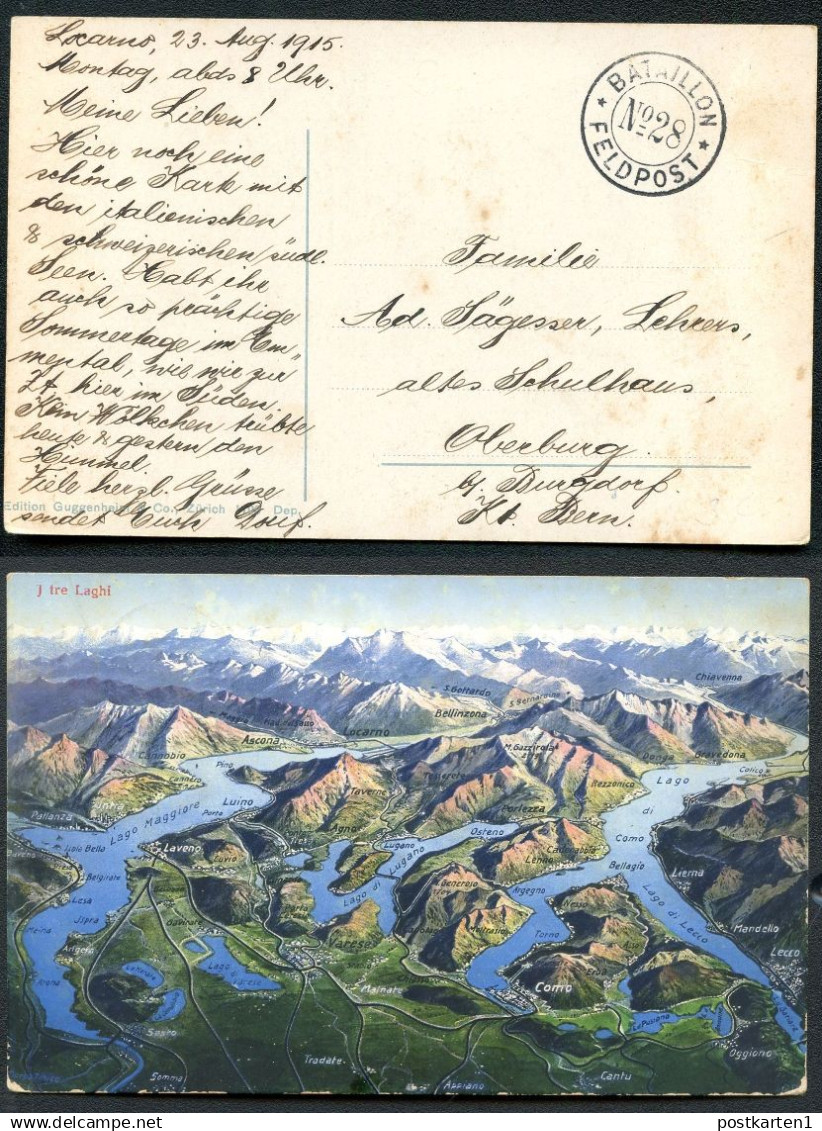 Locarno, 23. Aug. 1915.
Montag, abds 8 Uhr.
Meine Lieben!
Hier noch eine
schöne Karte mit
den italienischen
& schweizerischen südl.
Seen. Habt ihr
auch so prächtige
Sommertage im Em-
mental, wie wir zur
Zt. hier im Süden.
Kein Wölkchen trübte
heute & gestern den
Himmel.
Viele herzl. Grüsse
sendet Euch
Edition Guggenheim & Co., Zürich Dep.
BATAILLON
No 28
FELDPOST
Familie
Ad. Sägesser, Lehrers,
altes Schulhaus,
Oberburg.
b/ Burgdorf.
Kt. Bern.
J tre Laghi
Chiavenna
S. Gottardo
S. Bernardino
Bellinzona
Locarno
Ascona
Cannobio
M. Gazzirola
Donga
Gravedona
Colico
Pino
Rezzonico
Lago
di
Como
Taverne
Luino
Porlezza
Pallanza
Lago Maggiore
Agno
Osteno
Isola Bella
Laveno
Lugano
Lago di Lugano
Lenno
Bellagio
Lierna
Belgirate
Argegno
Lago di Lecco
Lesa
Ispra
Gavirate
Torno
Mandello
Meina
Varese
Lecco
Malnate
Como
Oggiono
Tradate
Somma
Appiano
Cantu
postkarten1